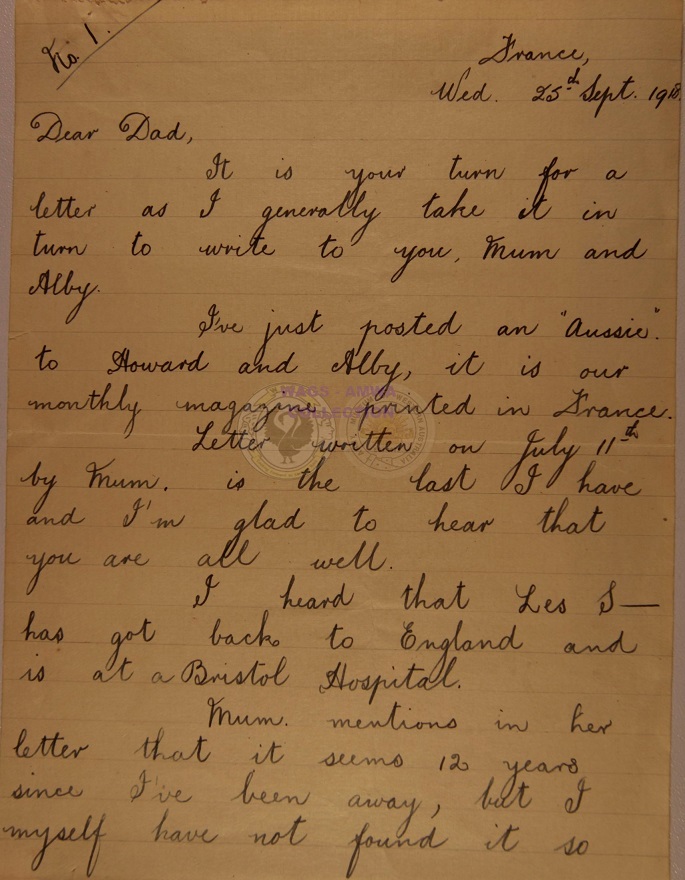 No. 1.
France,
Wed. 25th Sept. 1918.
Dear Dad,
It is your turn for a
letter as I generally take it in
turn to write to you, Mum and
Alby.
I've just posted an "Aussie".
to Howard and Alby, it is our
monthly magazine printed in France.
Letter written on July 11th
by Mum. is the last I have
and I'm glad to hear that
you are all well.
I heard that Les S—
has got back to England and
is at a Bristol Hospital.
Mum. mentions in her
letter that it seems 12 years
since I've been away, but I
myself have not found it so
RAGS - AMWA
COLLECTION